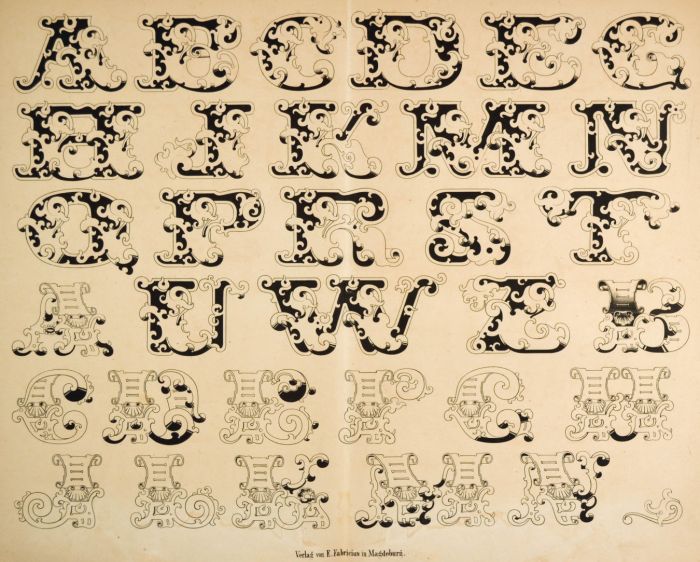 A B C D E G
H J K M N
Q P R S T
A U W Z B
C D E F G H
J L K M N
Verlag von E. Fabricius in Magdeburg.